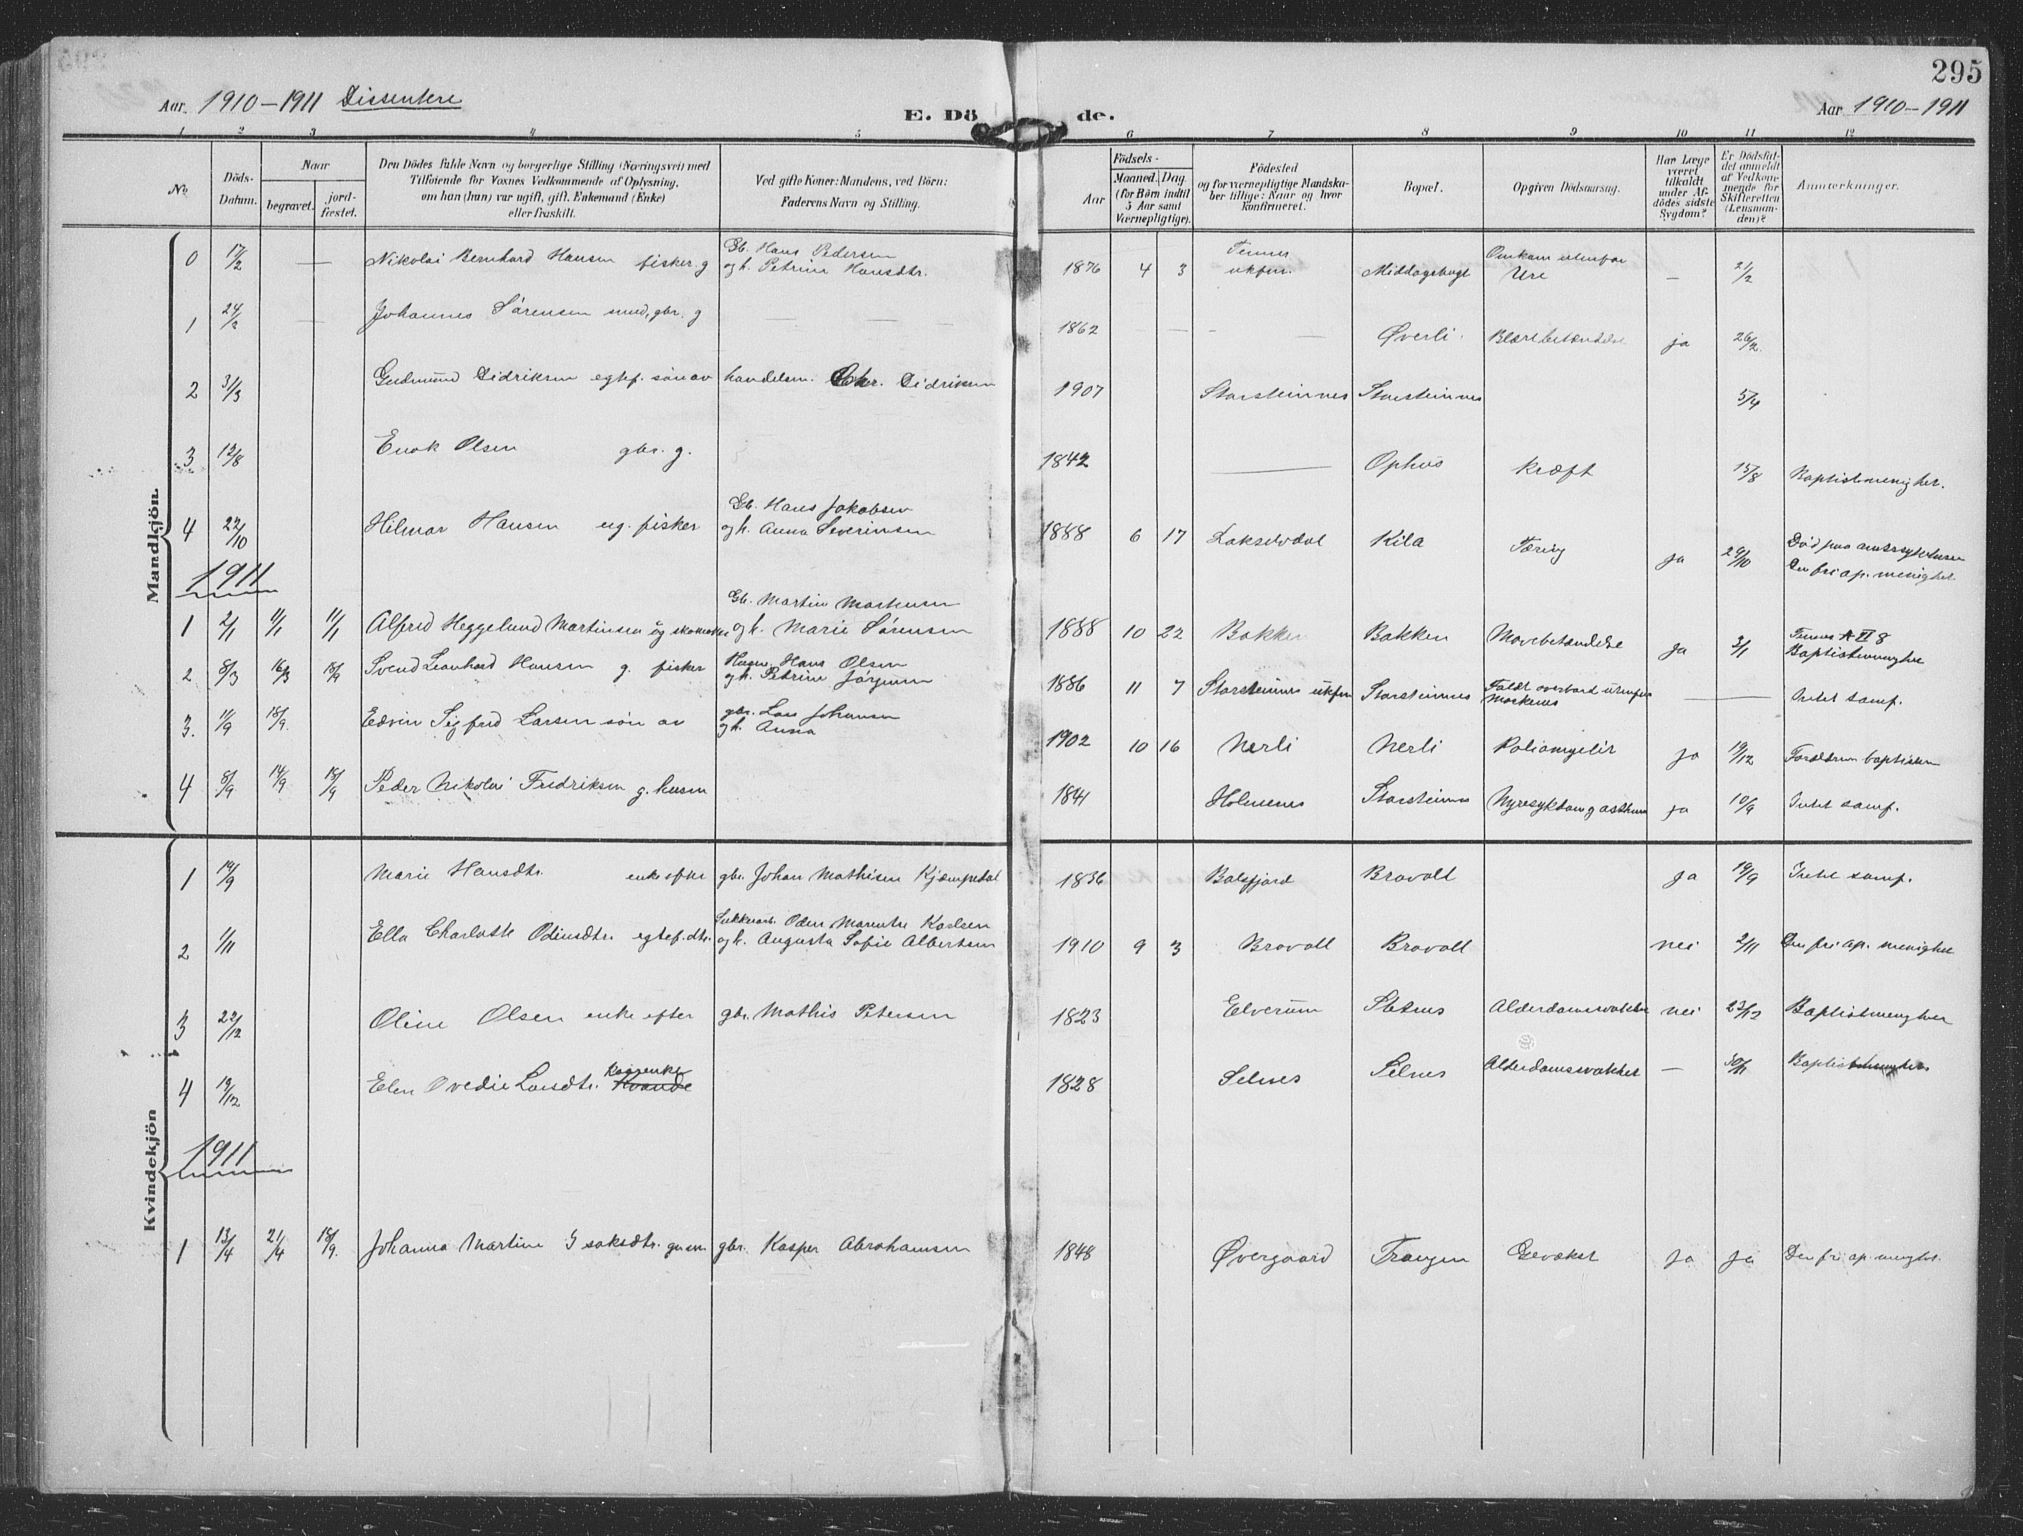 295
Aar. 1910-1911 Dissentere
E. Döde.
Aar 1910-1911
1 2 3 4 5 6 7 8 9 10 11 12
No.
Döds-Datum.
Naar
begravet.
jord-fæstet.
Den Dödes fulde Navn og borgerlige Stilling (Næringsvei) med
Tilföiende for Voxnes Vedkommende af Oplysning,
om han (hun) var ugift, gift, Enkemand (Enke)
eller fraskilt.
Ved gifte Koner: Mandens, ved Börn:
Faderens Navn og Stilling.
Aar
Födsels-
Maaned. Dag.
(for Börn indtil
5 Aar samt
Værnepligtige).
Födested
og for værnepligtige Mandska-
ber tillige: Naar og hvor
konfirmeret.
Bopæl.
Opgiven Dödsaarsag.
Har Læge
været
tilkaldt
under Af-
dödes sidste
Sygdom?
Er Dödsfal-
det anmeldt
af Vedkom-
mende for
Skifteretten
(Lensman-
den)?
Anmærkninger.
Mandkjön.
0 17/2 — Nikolai Bernhard Hansen fisker. g Gb. Hans Pedersen
og h. Petrine Hansdtr. 1876 4 3 Tennes
ukfen. Middagsbugt Omkom utenfor
Ure — 21/2
1 24/2 — Johannes Sørensen smed, gbr. g — — — 1862 — — — — Øverli. Blærebetændelse ja 26/2.
2 31/3 Gudmund Didriksen egtef. søn av handelsm. Chr. Didriksen 1907 Storsteinnes Storsteinnes 5/4
3 12/8 Enok Olsen gbr. g. 1842 — Ophus Kræft 15/8 Baptistmenighet.
4 22/10 Hilmar Hansen ug. fisker Gb. Hans Jakobsen
og h. Anna Severinsen 1888 6 17 Lakselvdal Kila Tæring ja 29/10 Død paa amtssykehuset
Den fri ap. menighet.
1911
1 2/1 11/1 11/1 Alfred Heggelund Martinsen ug skomaker Gb. Martin Mortensen
og h. Marie Sørensen 1888 10 22 Bakken Bakken Mavebetændelse Ja 3/1 Tennes A II 8
Baptistmenighet
2 8/3 16/3 18/9 Svend Leonhard Hansen g. fisker Husm. Hans Olsen
og h. Petrine Jørgensen 1886 11 7 Storsteinnes ukfen Storsteinnes Faldt overbord utenfor
Moskenes — — Intet samf.
3. 11/9 18/9. Edvin Sigfred Larsen søn av gbr. Lars Johansen
og h. Anna 1902 10 16 Nerli Nerli Poliomyelit Ja 19/12 Forældrene baptister
4 8/9 14/9 18/9 Peder Nikolai Fredriksen g. husm 1841 Holmenes Storsteinnes Nyresykdom g asthma ja 10/9 Intet samf.
Kvindekjön
1 14/9 Marie Hansdtr. enke efter gbr. Johan Mathisen Kjempedal 1836 Balsfjord Bravold ja 19/9 Intet samf.
2 1/11 Ella Charlotte Odinsdtr. egtef. dtr. Oden Marentse Karlsen
og h. Augusta Sofie Albertsen 1910 9 3 Bravold Bravold nei 2/11 Den fri ap. menighet
3 22/12 Oline Olsen enke efter gbr. Mathis Petersen 1823 Elverum Stenes Alderdomssvakhet nei 23/12 Baptistmenighet
4 19/12 Elen Ovedie Larsdtr. 1828 Selnes Selnes Alderdomssvakhet — 30/11 Baptistmenighet
1911
1 13/4 21/4 18/9. Johanna Martine Isaksdtr. gbr. Kasper Abrahamsen 1848 Øvergaard Trangen Gevækst ja ja Den fri ap. menghet.